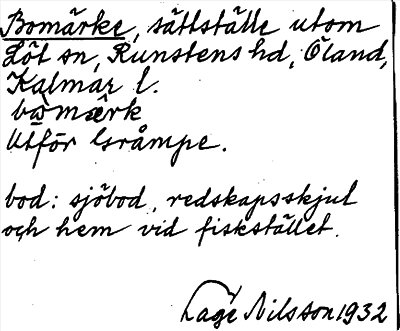 Bomärke, sättställe utom
Löt sn, Runstens hd, Öland,
Kalmar l.
bòmæ̂rk
Utför Gråmpe.
bod: sjöbod, redskapsskjul
och hem vid fiskstället.
Lage Nilsson 1932